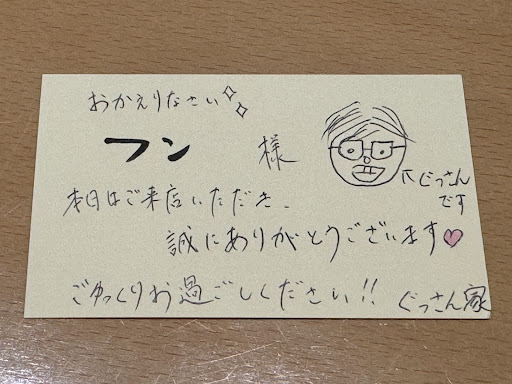 おかえりなさい✧✧
フン 様
↖ぐっさん
です
本日はご来店いただき、
誠にありがとうございます♥
ごゆっくりお過ごしください!!
ぐっさん家